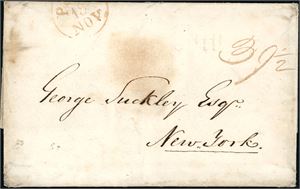 NOV
39½
George Suckley Esqr
New York